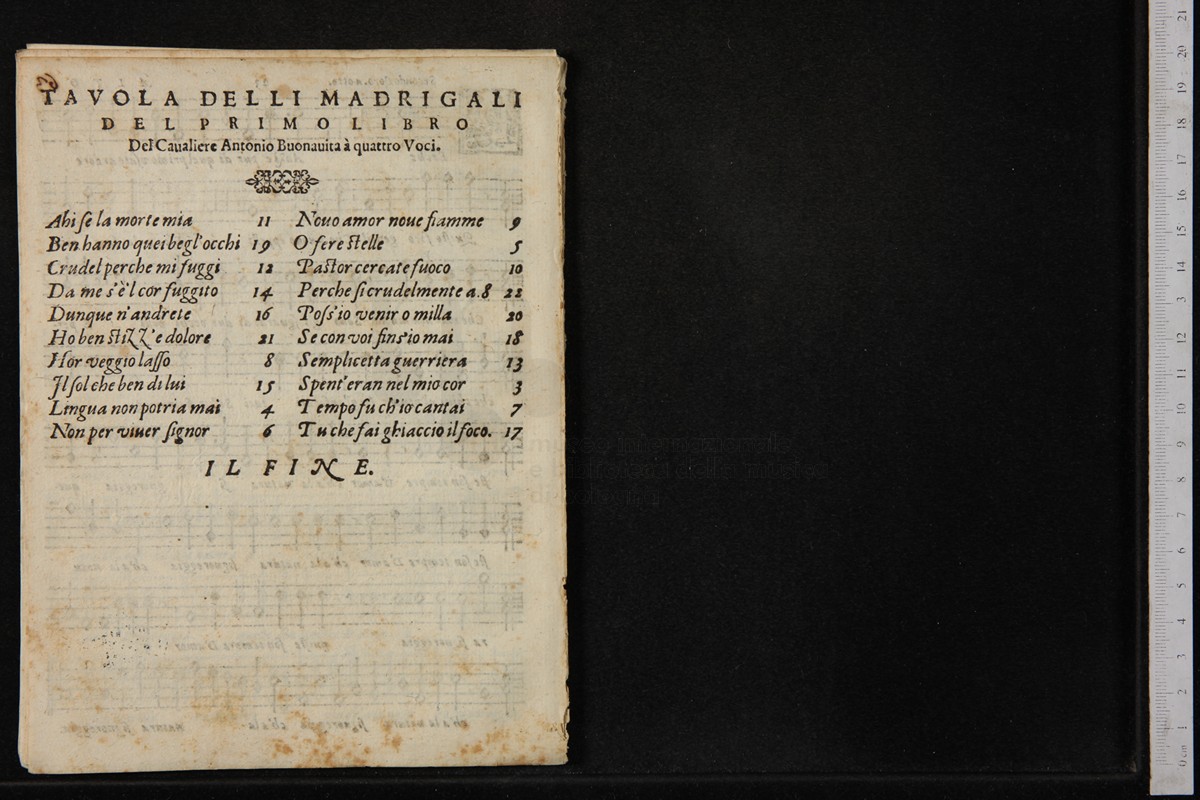 TAVOLA DELLI MADRIGALI
DEL PRIMO LIBRO
Del Caualiere Antonio Buonauita à quattro Voci.
Ahi se la morte mia 11
Ben hanno quei begl'occhi 19
Crudel perche mi fuggi 12
Da me s'è'l cor fuggito 14
Dunque n'andrete 16
Ho ben stizz'e dolore 21
Hor veggio lasso 8
Il sol che ben di lui 15
Lingua non potria mai 4
Non per viuer signor 6
Nouo amor noue fiamme 9
O fere stelle 5
Pastor cercate fuoco 10
Perche si crudelmente a.8 22
Poss'io venir o milla 20
Se con voi fins'io mai 18
Semplicetta guerriera 13
Spent'eran nel mio cor 3
Tempo fu ch'io cantai 7
Tu che fai ghiaccio il foco. 17
IL FINE.
0 cm 1 2 3 4 5 6 7 8 9 10 11 12 13 14 15 16 17 18 19 20 21